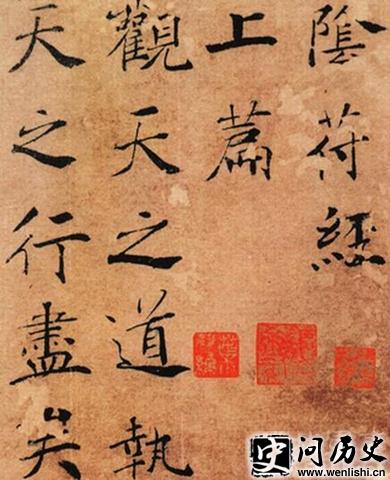 陰符經
上篇
觀天之道執
天之行盡矣
史问历史
www.wenlishi.cn